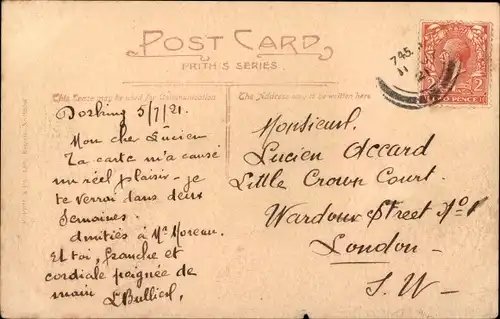 POST CARD
FRITH'S SERIES
This Space may be used for Communication
The Address only to be written here
745.
11
21
TWO PENCE
Dorking 5/7/21.
Mon cher Lucien
Ta carte m'a causé
un réel plaisir - je
te verrai dans deux
semaines.
Amitiés à Mr Moreau.
Et toi, franche et
cordiale poignée de
main
Monsieur.
Lucien Accard
Little Crown Court.
Wardour Street No 1
London -
S. W -